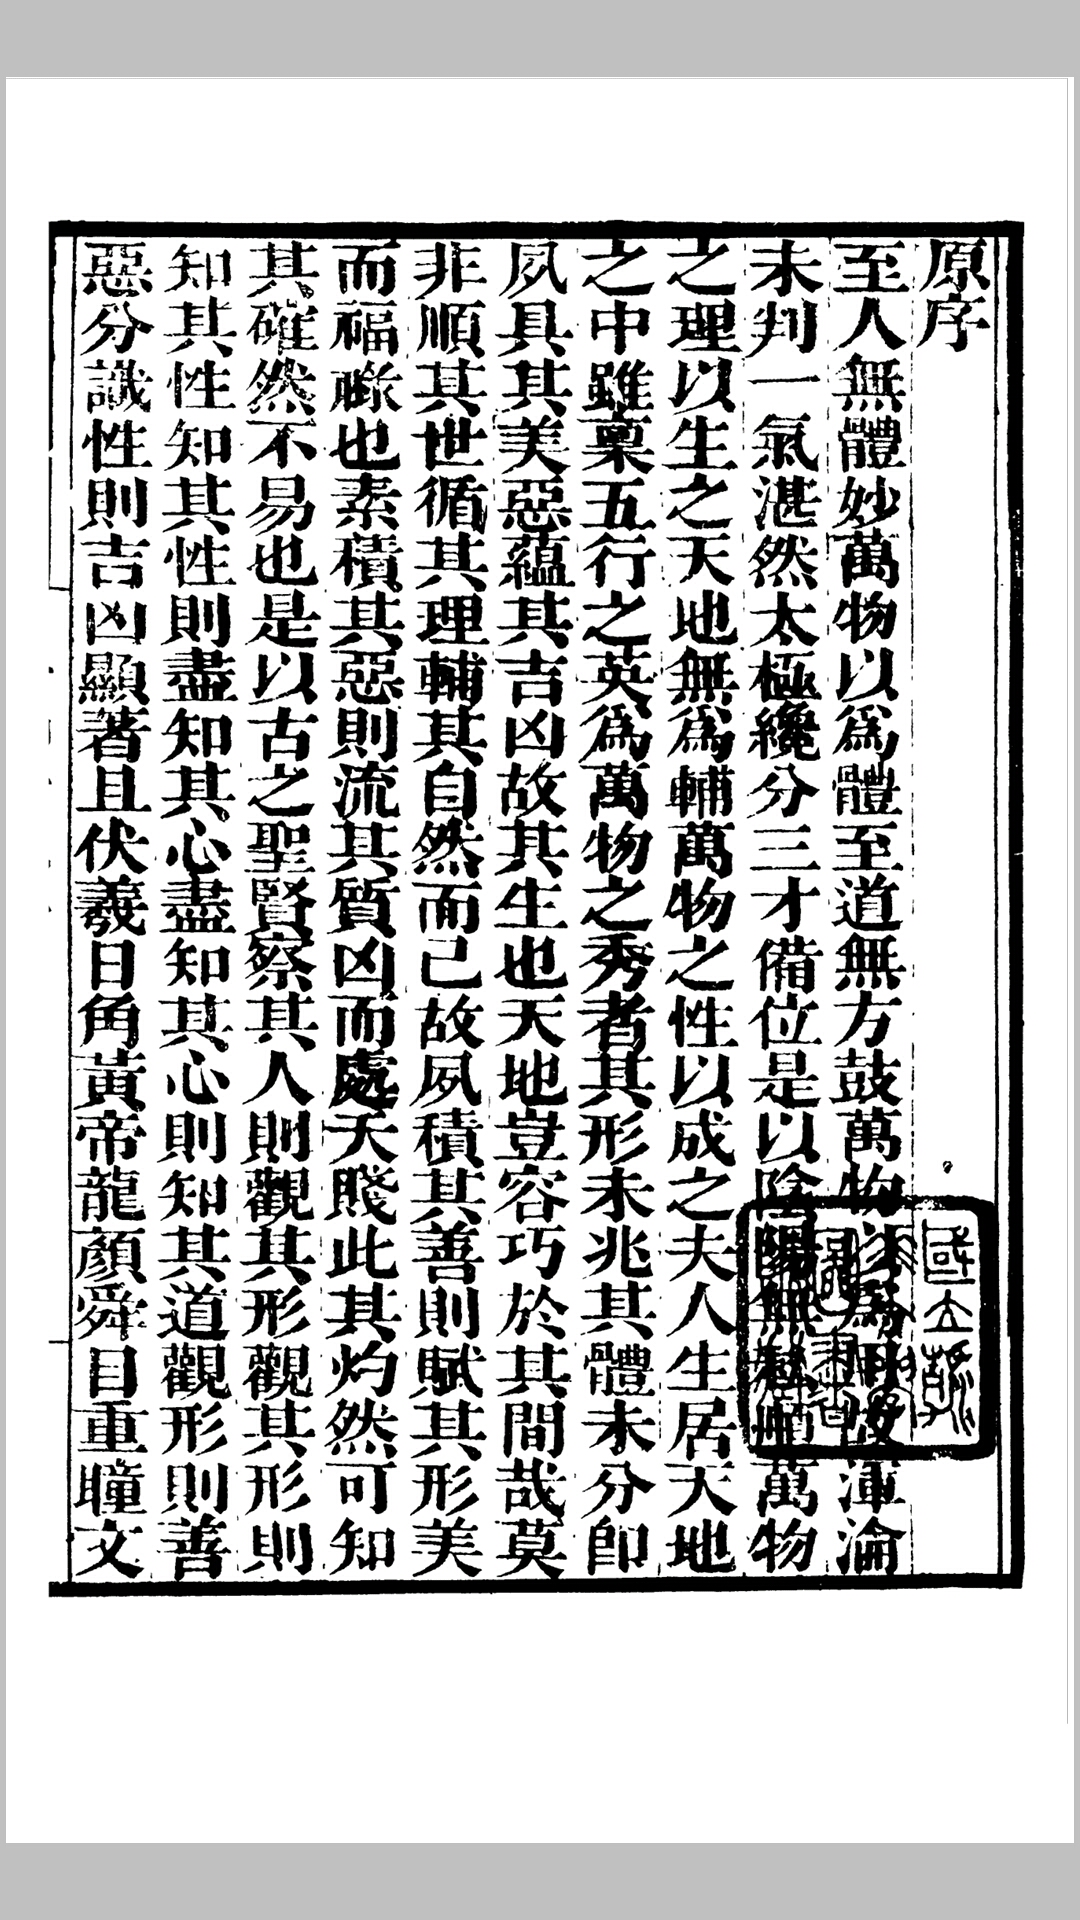 原序
至人無體妙萬物以爲體至道無方鼓萬物以爲用故渾淪
未判一氣湛然太極纔分三才備位是以陰陽無私順萬物
之理以生之天地無爲輔萬物之性以成之夫人生居天地
之中雖稟五行之英爲萬物之秀者其形未兆其體未分即
夙具其美惡蘊其吉凶故其生也天地豈容巧於其間哉莫
非順其世循其理輔其自然而已故夙積其善則賦其形美
而福祿也素積其惡則流其質凶而處夭賤此其灼然可知
其確然不易也是以古之聖賢察其人則觀其形觀其形則
知其性知其性則盡知其心盡知其心則知其道觀形則善
惡分識性則吉凶顯著且伏羲日角黃帝龍顏舜目重瞳文